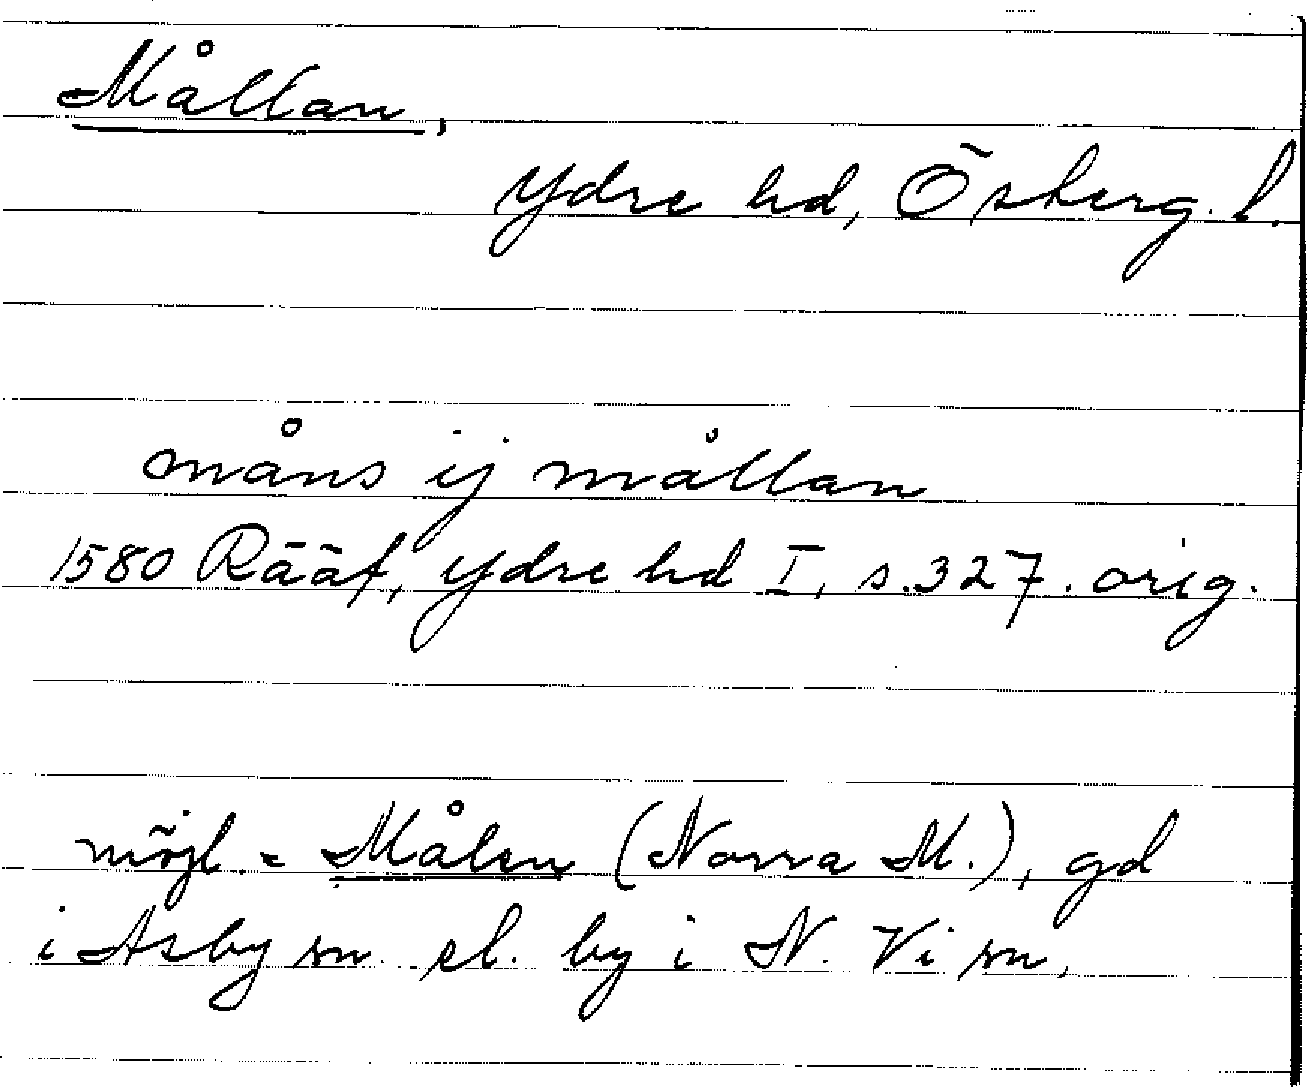 Mållan,
Ydre hd, Österg. l.
måns ij mållan
1580 Rääf, Ydre hd I, s. 327. orig.
möjl. = Målen (Norra M.), gd
i Asby sn. el. by i N. Vi sn.